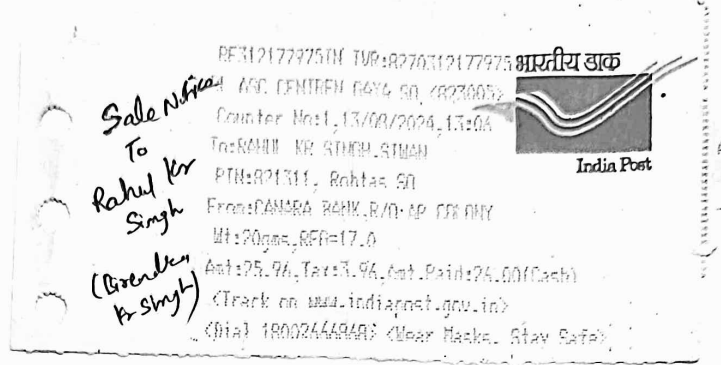 RF312177975IN IVR:8270312177975
ASC CENTREN GAYA SO <823005>
Counter No:1,13/08/2024,13:06
To:RAHUL KR SINGH,SIWAN
PIN:821311, Rohtas SO
From:CANARA BANK,R/O AP COLONY
Wt:20gms,REG=17.0
Amt:25.96,Tax:3.96,Amt.Paid:26.00(Cash)
<Track on www.indiapost.gov.in>
<Dial 18002666868> <Wear Masks, Stay Safe>
भारतीय डाक
India Post
Sale Notice
To
Rahul Kr
Singh
Kr Singh)